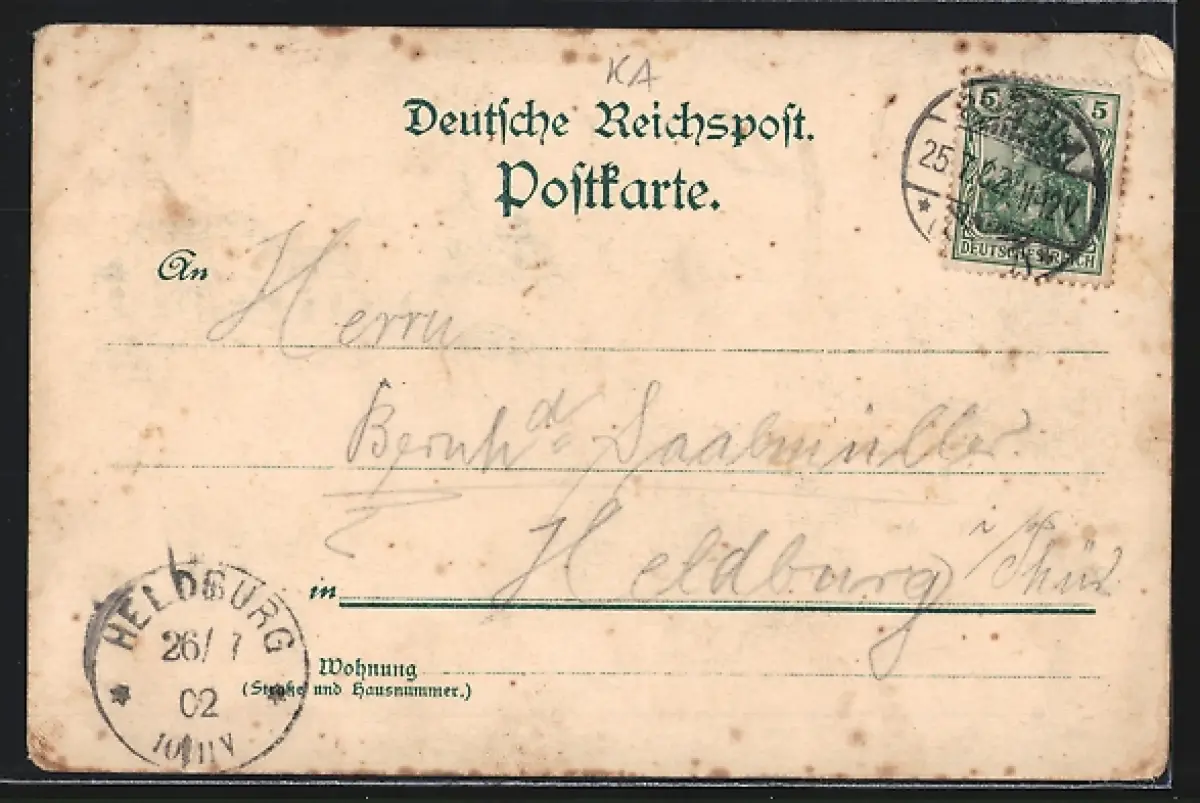 KA
Deutsche Reichspost.
Postkarte.
5 5
25.7.02 11-12V.
DEUTSCHES REICH
An Herrn
Bernhd. Saalmüller.
in Heldburg i/Thür
Wohnung
(Straße und Hausnummer.)
HELDBURG
26/7
02
10-11V